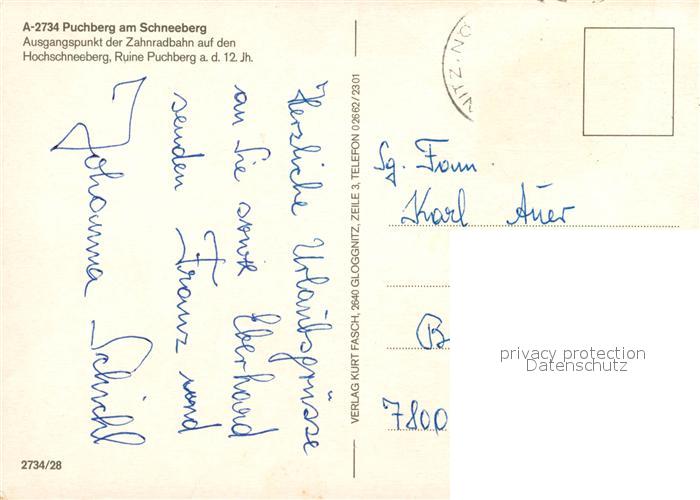 A-2734 Puchberg am Schneeberg
Ausgangspunkt der Zahnradbahn auf den
Hochschneeberg, Ruine Puchberg a. d. 12. Jh.
Herzliche Urlaubsgrüsse
an Sie sowie Eberhard
senden Franz und
Johanna Schichl
2734/28
VERLAG KURT FASCH, 2640 GLOGGNITZ, ZEILE 3, TELEFON 02662/2301
NITZ, NÖ
Sg. Fam.
Karl Auer
B
7800
privacy protection
Datenschutz